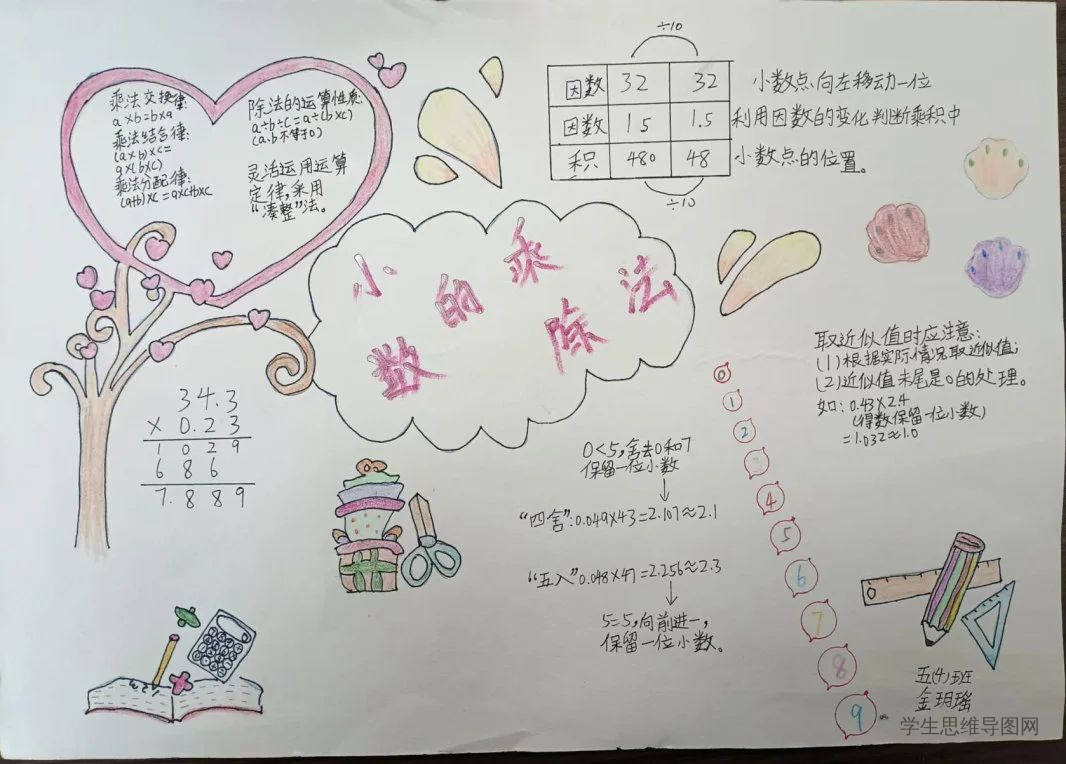 小数的乘除法
乘法交换律:
a×b=b×a
乘法结合律:
(a×b)×c=
a×(b×c)
乘法分配律:
(a+b)×c=a×c+b×c
除法的运算性质:
a÷b÷c=a÷(b×c)
(a.b不等于0)
灵活运用运算
定律,采用
“凑整”法。
÷10
因数 32 32
因数 15 1.5
积 480 48
÷10
小数点向左移动一位
利用因数的变化判断乘积中
小数点的位置。
34.3
×0.23
1029
686
7.889
取近似值时应注意:
(1)根据实际情况取近似值;
(2)近似值末尾是0的处理。
如:0.43×2.4
(得数保留一位小数)
=1.032≈1.0
0<5,舍去0和7
保留一位小数
“四舍”:0.049×43=2.107≈2.1
“五入”0.048×47=2.256≈2.3
5=5,向前进一,
保留一位小数。
0
1
2
3
4
5
6
7
8
9
五(4)班
金玥瑶
学生思维导图网